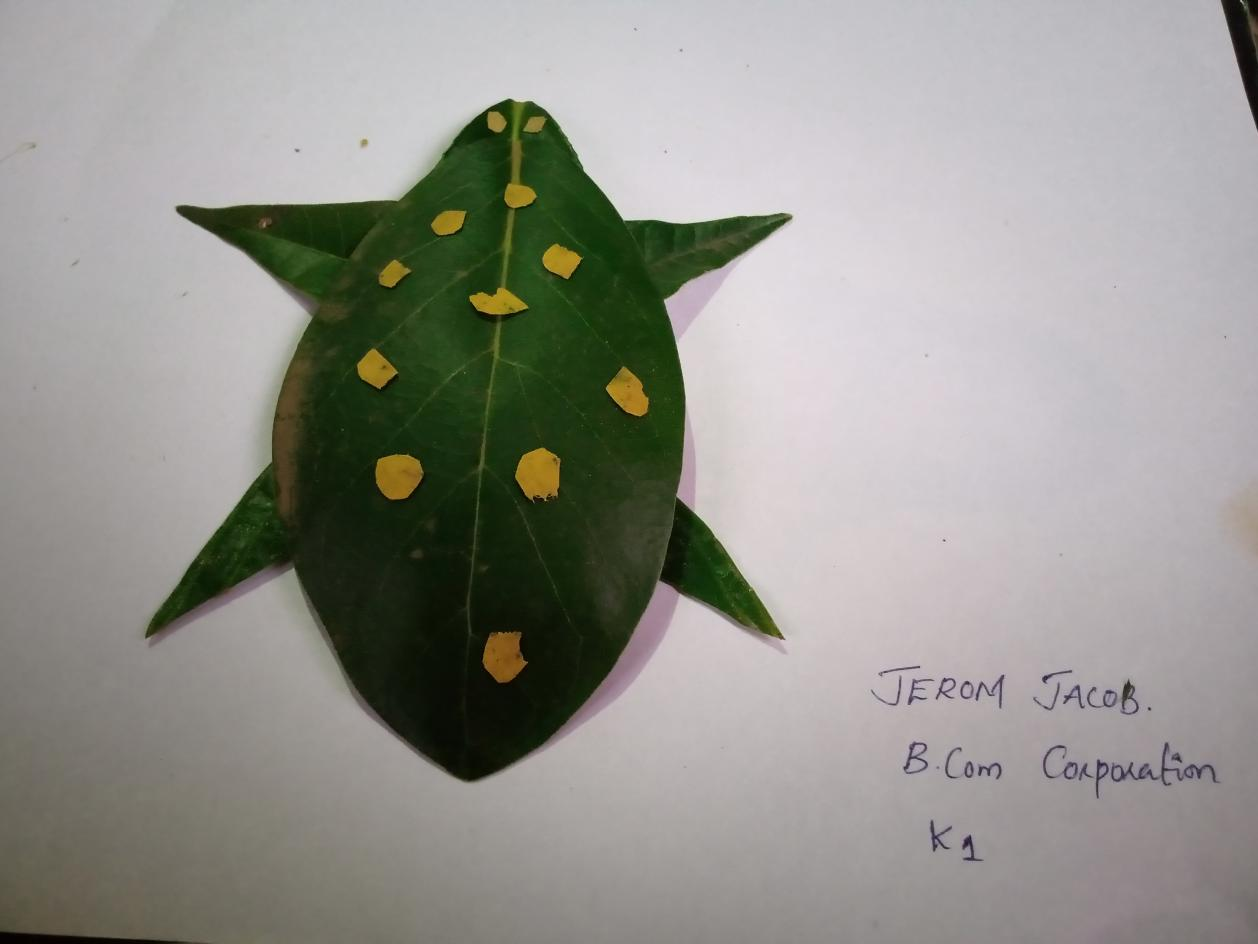 JEROM JACOB.
B.Com Corporation
K1